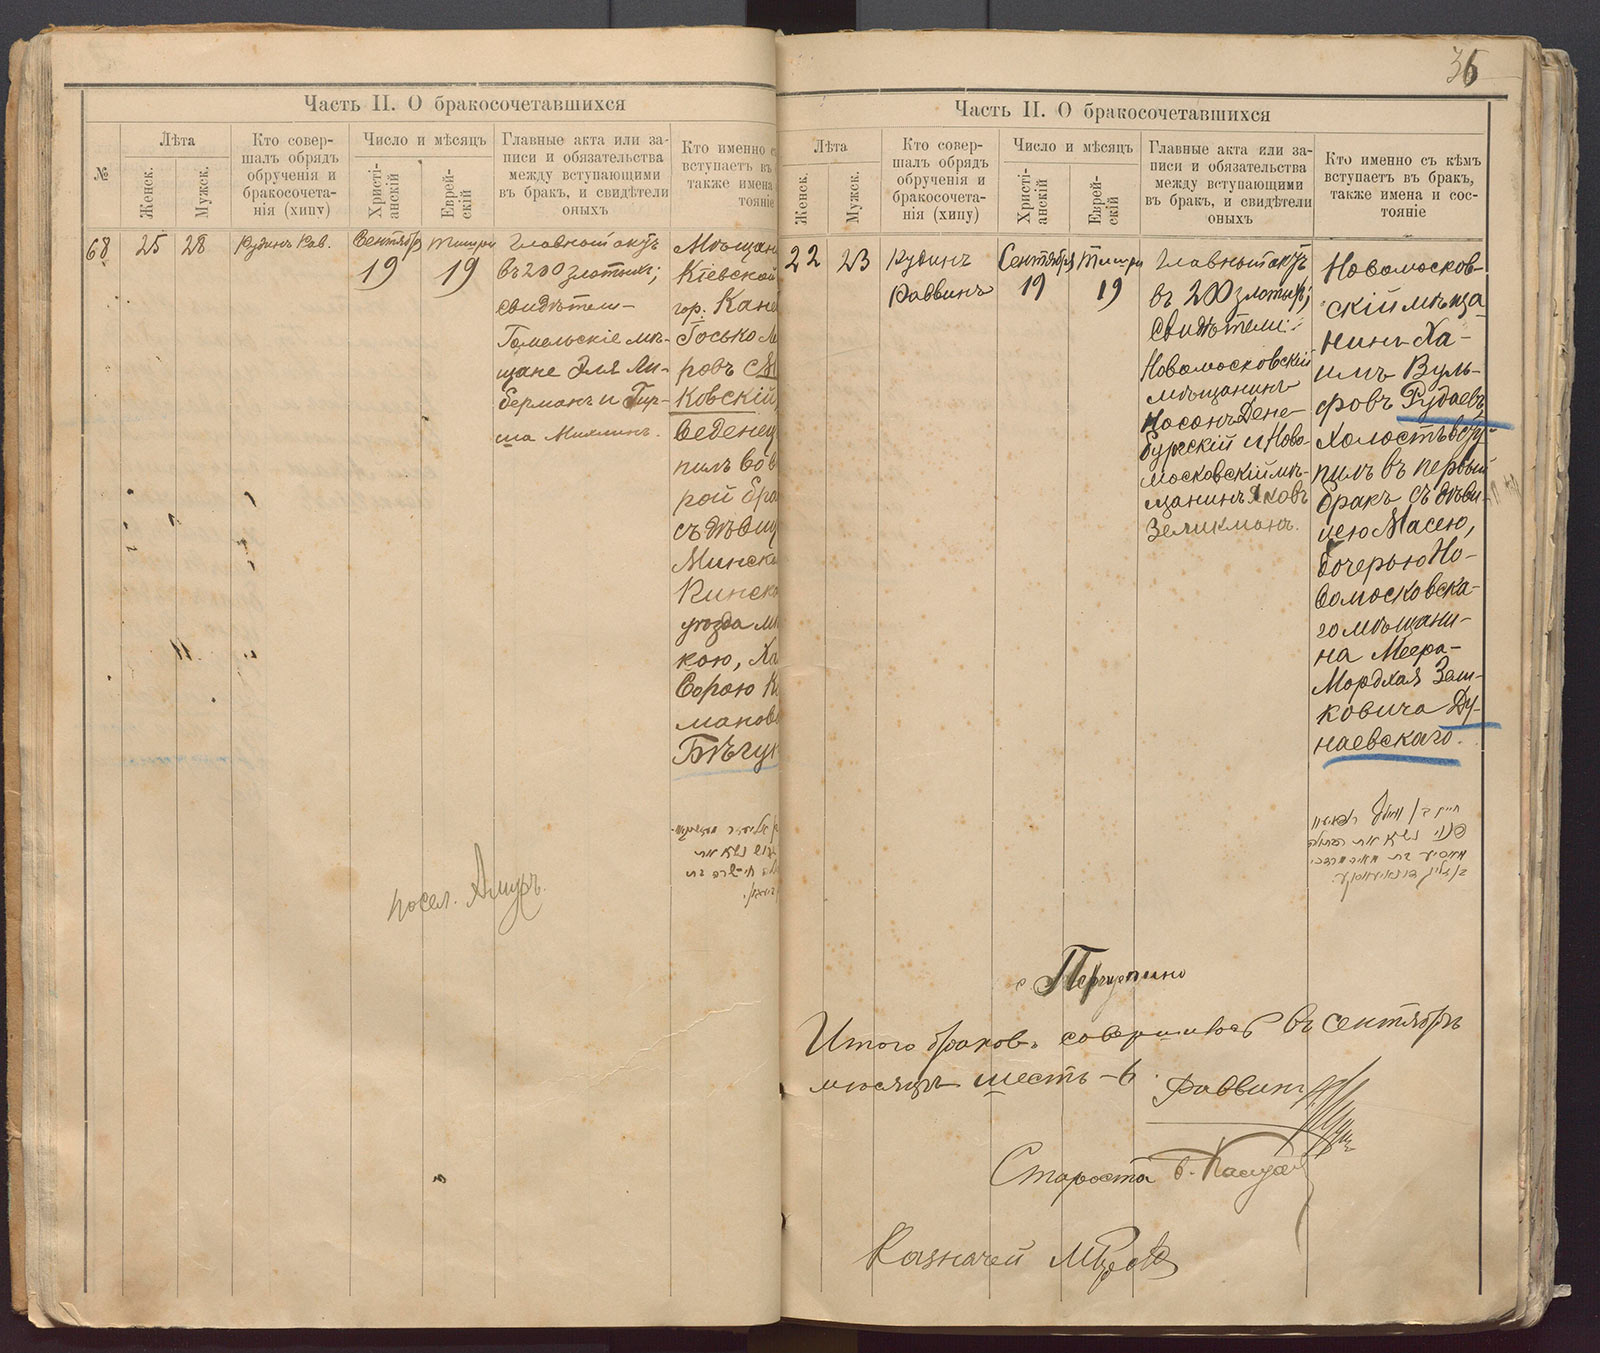 36
Часть II. О бракосочетавшихся
№
Лѣта
Женск.
Мужск.
Кто совер-
шалъ обрядъ
обрученія и
бракосочета-
нія (хипу)
Число и мѣсяцъ
Христі-
анскій
Еврей-
скій
Главные акта или за-
писи и обязательства
между вступающими
въ бракъ, и свидѣтели
оныхъ
Кто именно с
вступаетъ въ
также имена
тояніе
68
25
28
Кудинъ Рав.
Сентября
19
Тишри
19
Главный актъ
въ 200 златыхъ;
свидѣтели
Гомельскіе мѣ-
щане Эля Ли-
берманъ и Гир-
ша Михлинъ.
Мѣщан
Кіевской
гор. Кане
Іосько
ровъ
ковскій,
веденец
пилъ во в
рой бра
съ дѣвиц
Минск
Пинско
уѣзда мѣ
кою, Ха
Сорою К
манов
Бѣгун
посел. Амуръ.
Часть II. О бракосочетавшихся
Лѣта
Женск.
Мужск.
Кто совер-
шалъ обрядъ
обрученія и
бракосочета-
нія (хипу)
Число и мѣсяцъ
Христі-
анскій
Еврей-
скій
Главные акта или за-
писи и обязательства
между вступающими
въ бракъ, и свидѣтели
оныхъ
Кто именно съ кѣмъ
вступаетъ въ бракъ,
также имена и сос-
тояніе
22
23
Кудинъ
Раввинъ
Сентября
19
Тишри
19
Главный актъ
въ 200 златыхъ;
Свидѣтели:
Новомосковскій
мѣщанинъ
Носонъ Дене-
бургскій и Ново-
московскій мѣ-
щанинъ Яковъ
Зеликманъ.
Новомосков-
скій мѣща-
нинъ Ха-
имъ Вуль-
фовъ Рудаевъ,
холостъ всту-
пилъ въ первый
бракъ съ дѣви-
цею Масею,
дочерью Но-
вомосковска-
го мѣщани-
на Меера-
Мордхая Зели-
ковича Ду-
наевскаго.
Итого браковъ совершилось въ сентябрѣ
мѣсяцѣ шесть - 6.
Раввинъ
Староста
Казначей